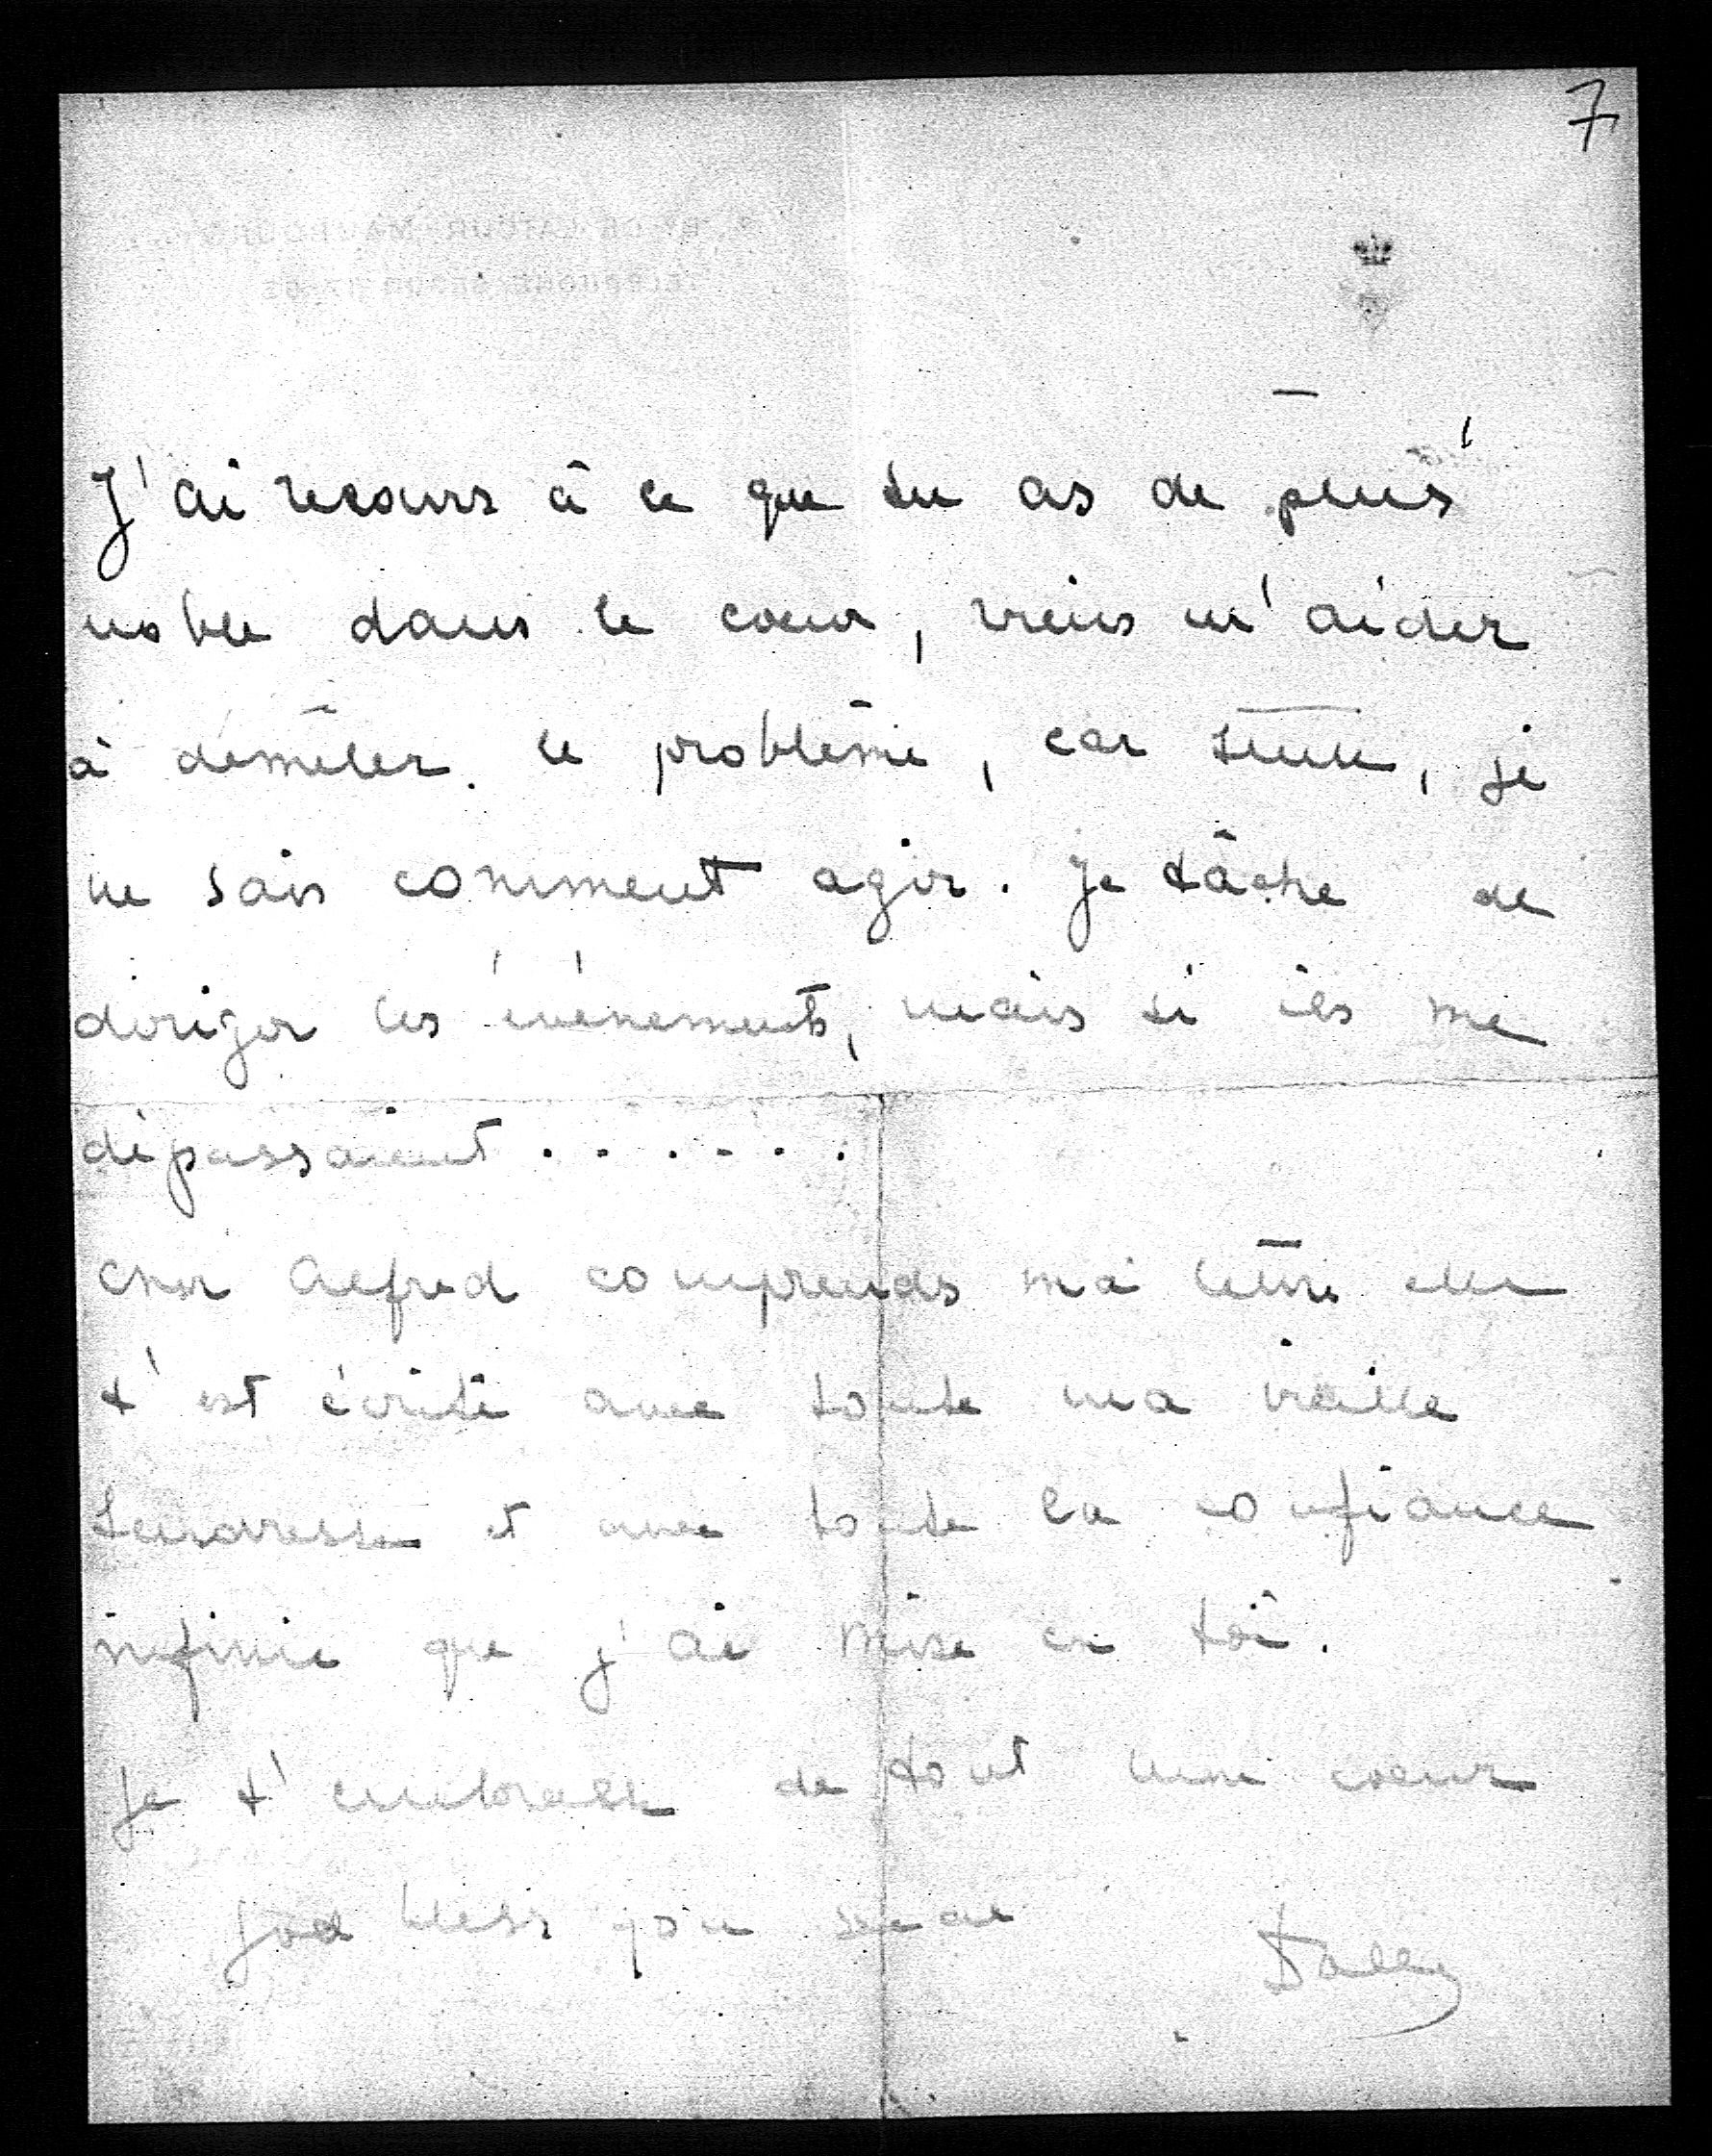 7
J'ai recours à ce que tu as de plus
noble dans le coeur, viens m'aider
à démêler le problême, car seule, je
ne sais comment agir. Je tâche de
diriger les événements, mais si ils me
dépassaient . . . . . .
Cher Alfred comprends ma lettre elle
t'est écrite avec toute ma vieille
tendresse et avec toute la confiance
infinie que j'ai mise en toi.
Je t'embrasse de tout mon coeur
God bless you